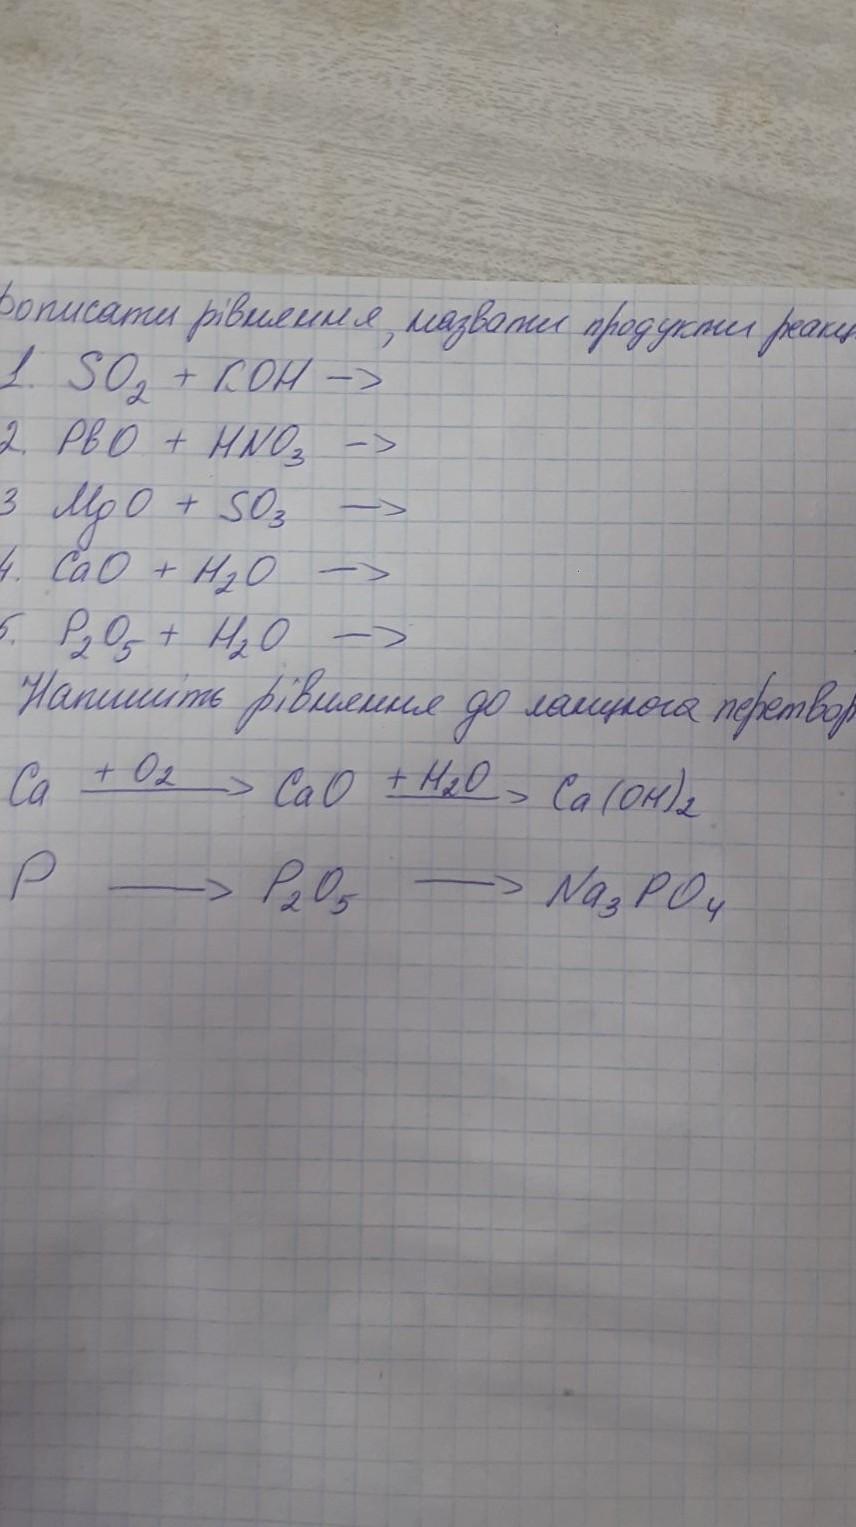 Дописати рівняння, назвати продукти реакц
1. SO₂ + KOH ->
2. PbO + HNO₃ ->
3 MgO + SO₃ ->
4. CaO + H₂O ->
5. P₂O₅ + H₂O ->
Напишіть рівняння до ланцюга перетвор
Ca + O₂ -> CaO + H₂O -> Ca(OH)₂
P -> P₂O₅ -> Na₃PO₄